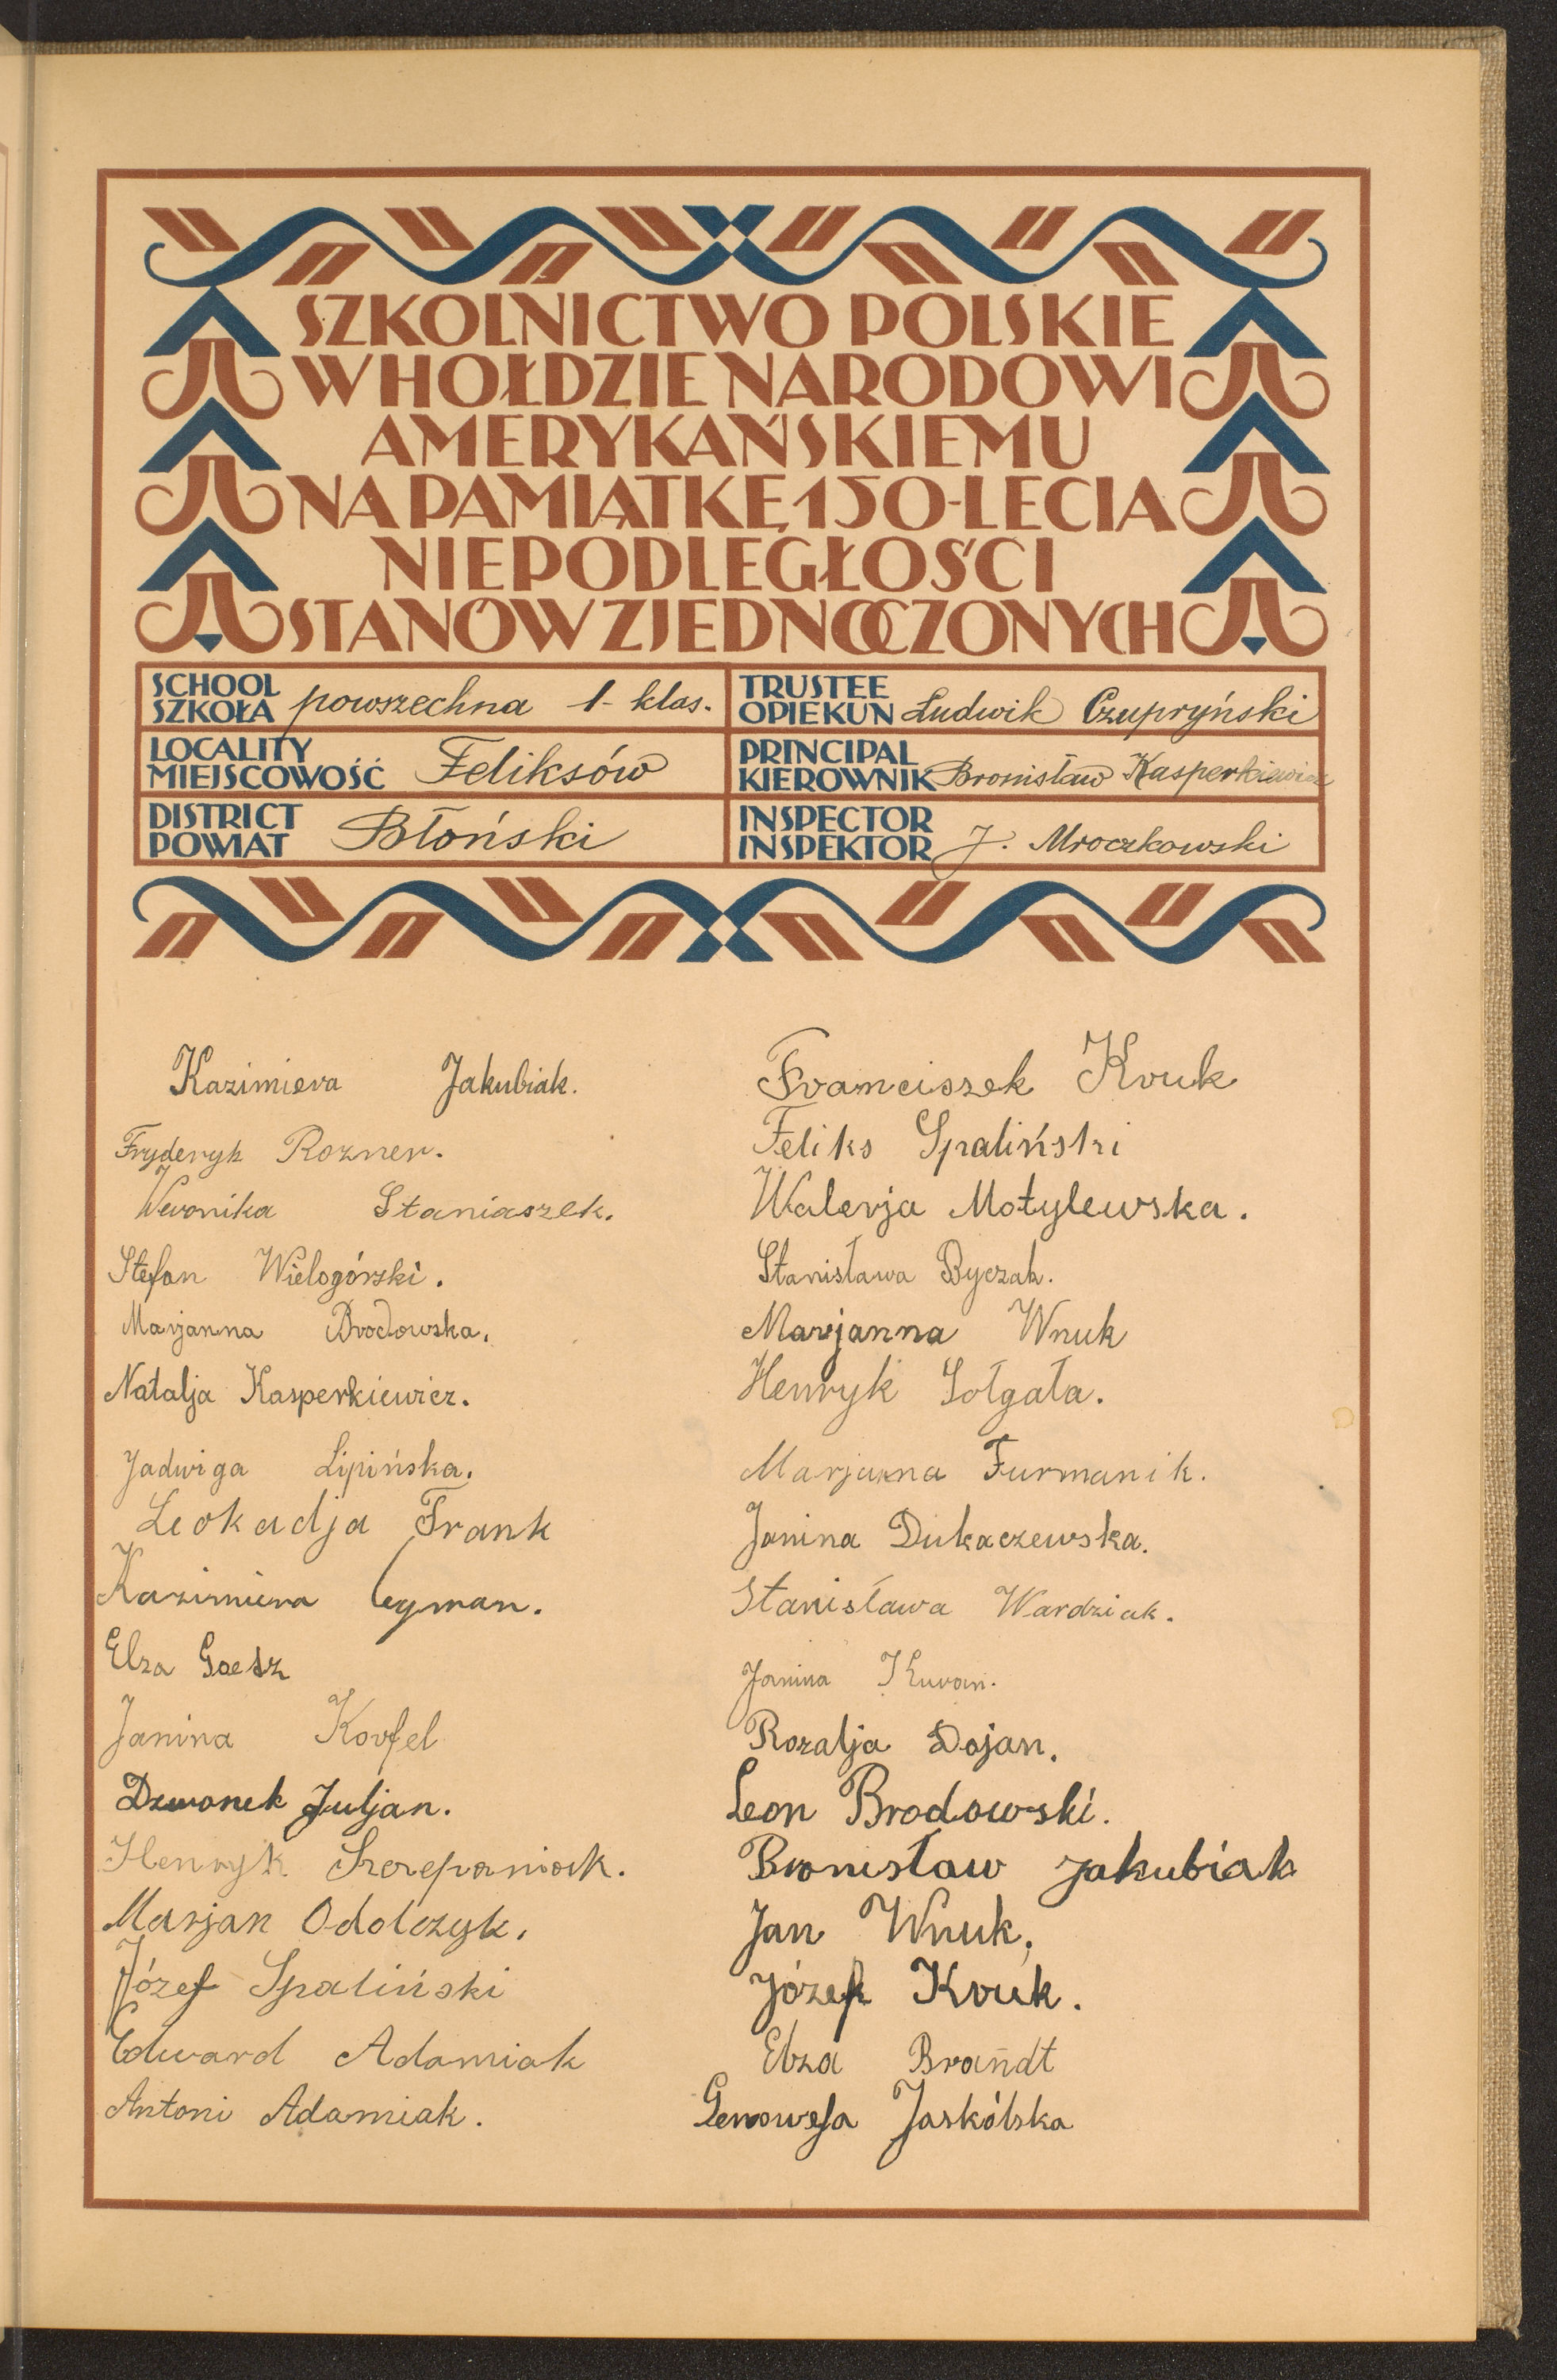 SZKOLNICTWO POLSKIE
W HOŁDZIE NARODOWI
AMERYKAŃSKIEMU
NA PAMIĄTKĘ 150-LECIA
NIEPODLEGŁOŚCI
STANÓW ZJEDNOCZONYCH
SCHOOL
SZKOŁA powszechna 1-klas.
TRUSTEE
OPIEKUN Ludwik Czupryński
LOCALITY
MIEJSCOWOŚĆ Feliksów
PRINCIPAL
KIEROWNIK Bronisław Kasperkiewicz
DISTRICT
POWIAT Błoński
INSPECTOR
INSPEKTOR J. Mroczkowski
Kazimiera Jakubiak.
Fryderyk Rozner.
Weronika Staniaszek.
Stefan Wielogórski.
Marjanna Brodowska.
Natalja Kasperkiewicz.
Jadwiga Lipińska.
Leokadja Frank
Kazimiera Cyman.
Elza Goesz
Janina Korfel
Dzwonek Juljan.
Henryk Szczepaniak.
Marjan Odolczyk.
Józef Spaliński
Edward Adamiak
Antoni Adamiak.
Franciszek Kruk
Feliks Spaliński
Walerja Motylewska.
Stanisława Byczak.
Marjanna Wnuk
Henryk Sołgała.
Marjanna Furmanik.
Janina Dukaczewska.
Stanisława Wardziak.
Janina Kuran.
Rozalja Dojan.
Leon Brodowski.
Bronisław Jakubiak
Jan Wnuk.
Józef Kruk.
Elza Brandt
Genowefa Jaskólska